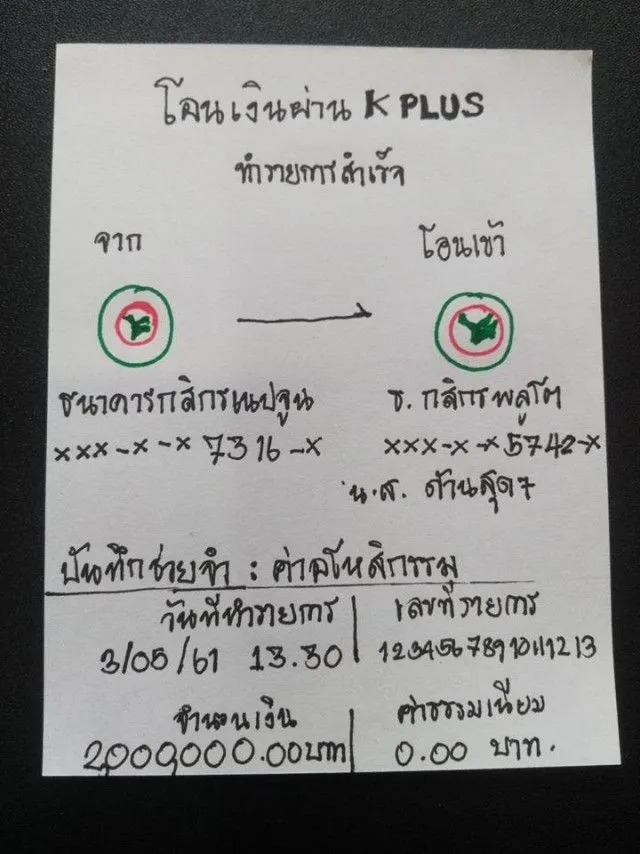 โอนเงินผ่าน K PLUS
ทำรายการสำเร็จ
จาก
โอนเข้า
ธนาคารกสิกรเนปจูน
ธ. กสิกรพลูโต
xxx-x-x7316-x
xxx-x-x5742-x
น.ส. ด้านสุดๆ
บันทึกช่วยจำ : ค่าอโหสิกรรม
วันที่ทำรายการ
เลขที่รายการ
3/05/61 13.30
12345678910111213
จำนวนเงิน
ค่าธรรมเนียม
2,000,000.00บาท
0.00 บาท.